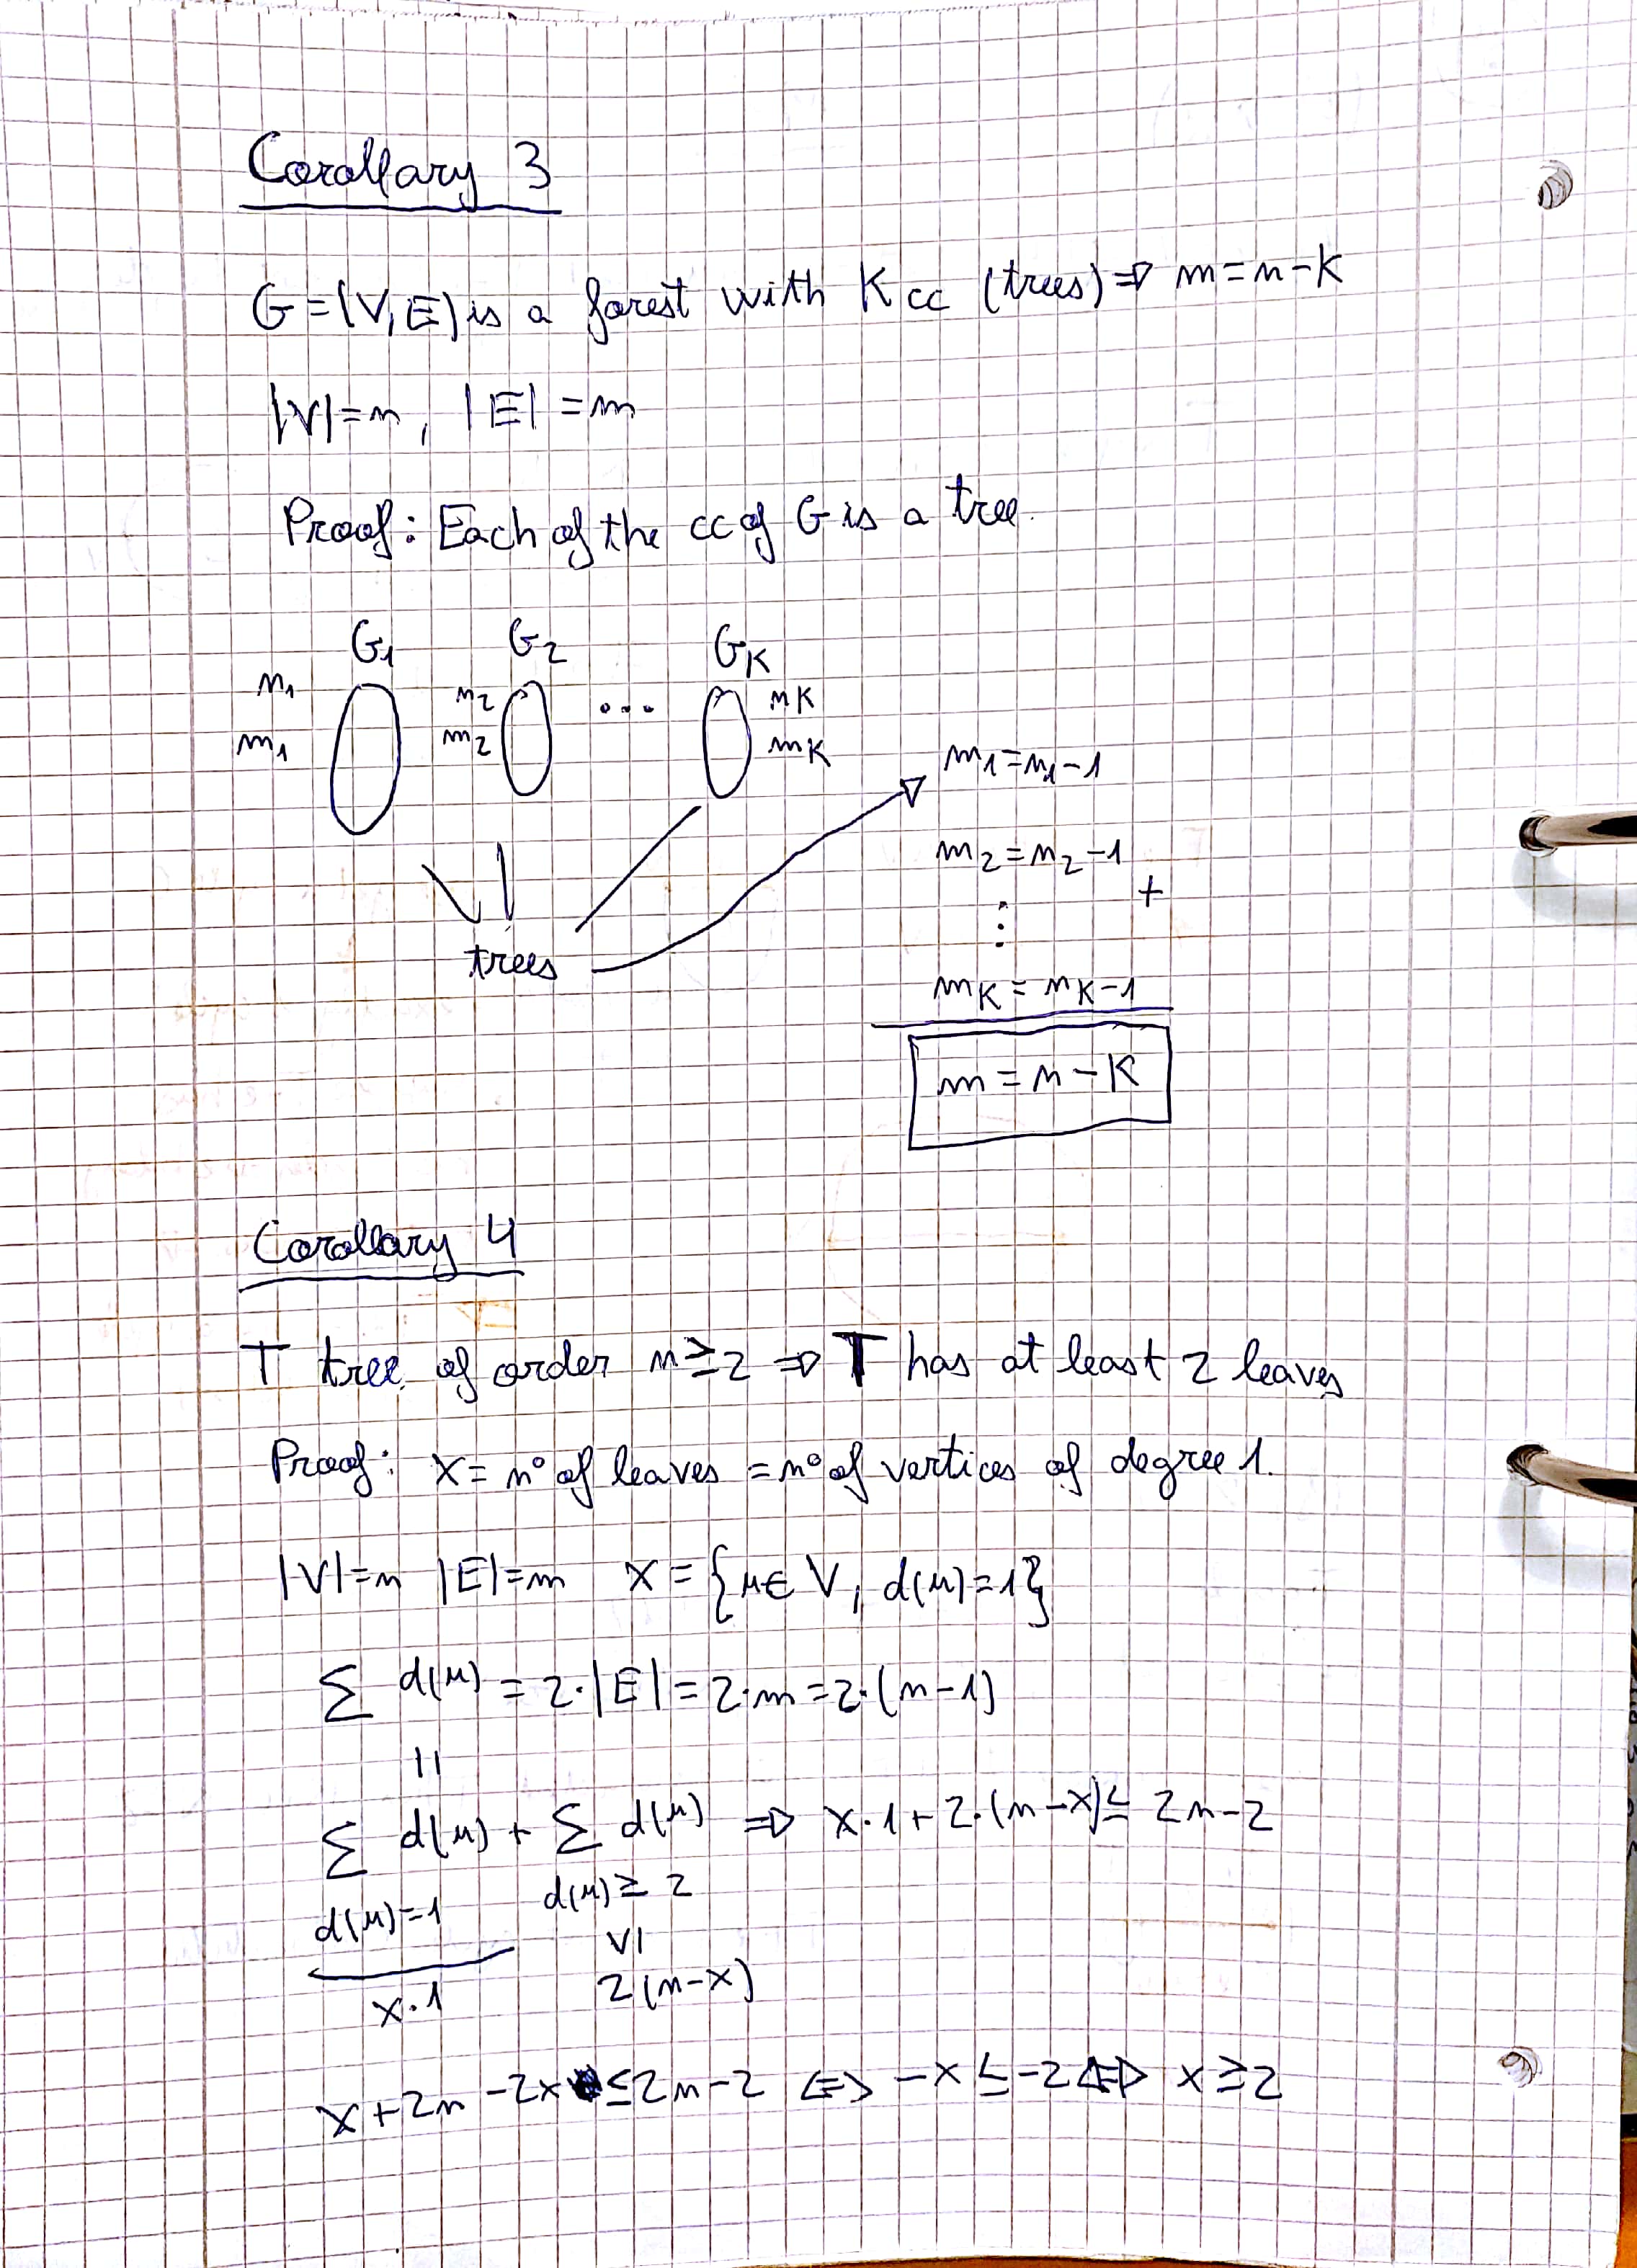 Corollary 3
G=(V,E) is a forest with K cc (trees) ⇒ m=n-K
|V|=n, |E|=m
Proof: Each of the cc of G is a tree.
G1 G2 GK
n1 n2 ... nK
m1 m2 mK
m1=n1-1
m2=n2-1
⋮ +
trees
mK=nK-1
m=n-K
Corollary 4
T tree of order n≥2 ⇒ T has at least 2 leaves
Proof: x= nº of leaves = nº of vertices of degree 1.
|V|=n |E|=m X={u∈V, d(u)=1}
∑ d(u) = 2·|E|=2·m=2·(n-1)
||
∑ d(u) + ∑ d(u) ⇒ x·1+2·(n-x)≤ 2n-2
d(u)=1 d(u)≥2
x·1 ≥ 2(n-x)
x+2n-2x≤2n-2 ⇔ -x≤-2 ⇔ x≥2